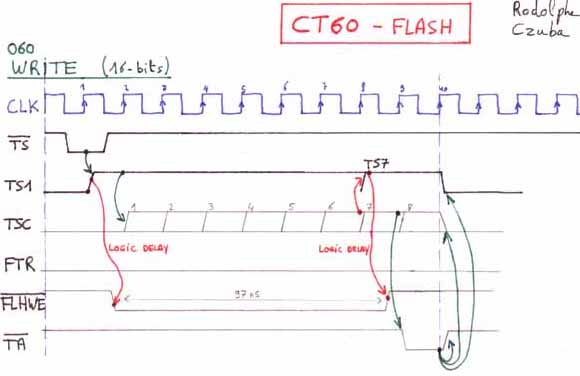 CT60 - FLASH
Rodolphe
Czuba
060
WRITE (16-bits)
CLK 1 2 3 4 5 6 7 8 9 10
TS
TS1 TS7
TSC 1 2 3 4 5 6 7 8
LOGIC DELAY LOGIC DELAY
FTR
FLHWE 97 nS
TA